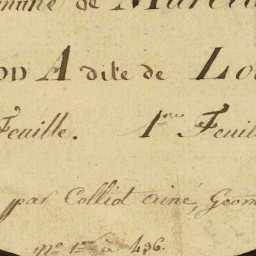 mune de Marcil
on A dite de Lo
Feuille. 1re Feuil
par Colliot ainé, Géom
No 1er à 496.